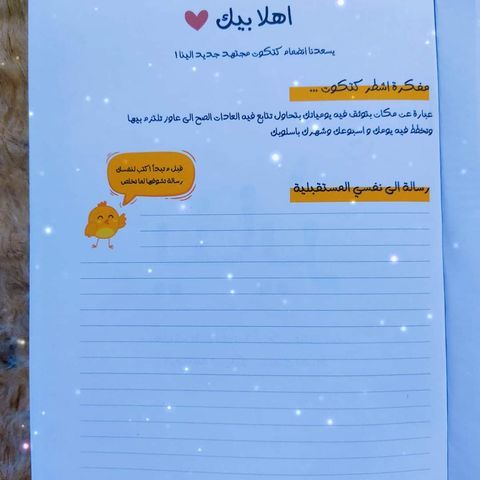 اهلا بيك
يسعدنا انضمام كتكوت مجتهد جديد الينا !
مفكرة اشطر كتكوت ...
عبارة عن مكان بتوثق فيه يومياتك بتحاول تتابع فيه العادات الصح الى عاوز تلتزم بيها
وتخطط فيه يومك و اسبوعك وشهرك باسلوبك
قبل م تبدأ اكتب لنفسك
رسالة تشوفها لما تخلص
رسالة الى نفسي المستقبلية